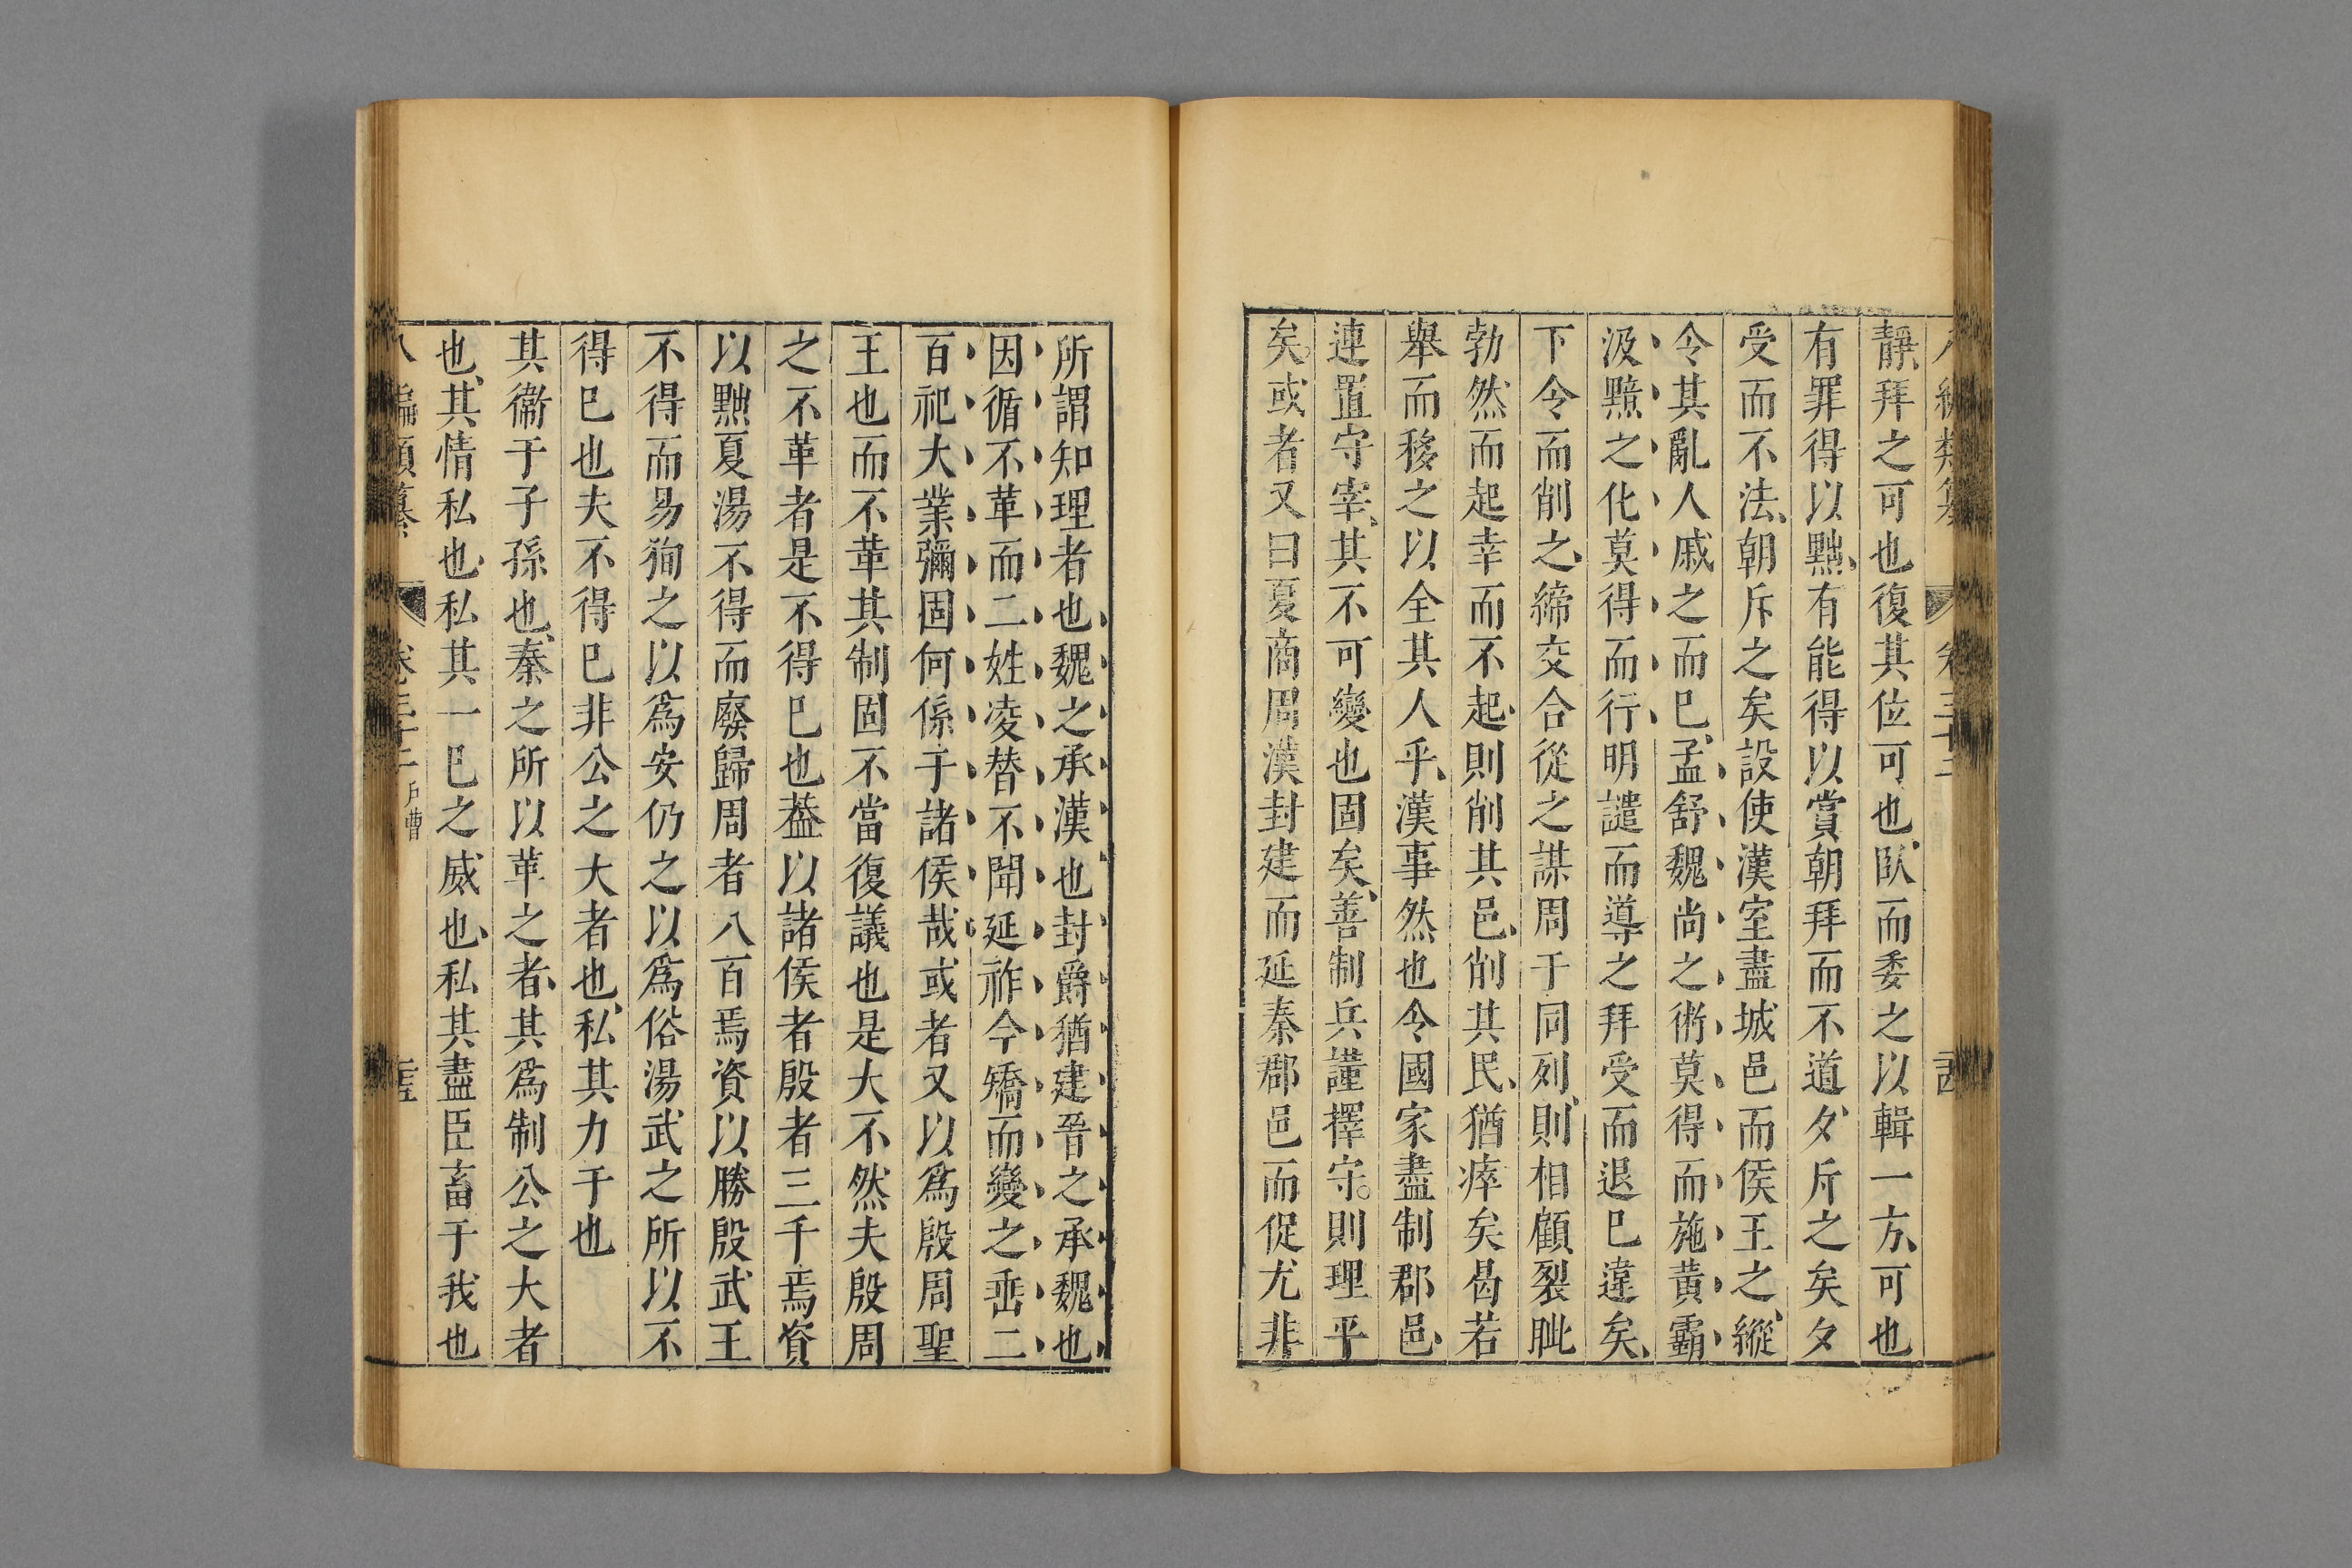 靜、拜之可也復其位可也、臥而委之以輯一方、可也
有罪得以黜、有能得以賞朝拜而不道夕斥之矣夕
受而不法、朝斥之矣設使漢室盡城邑而侯王之、縱
令其亂人戚之而巳、孟舒魏尚之術莫得而施黃霸
汲黯之化莫得而行、明譴而導之拜受而退巳違矣、
下令而削之、締交合從之謀周于同列、則相顧裂眦
勃然而起幸而不起、則削其邑、削其民、猶瘁矣曷若
舉而移之以全其人乎、漢事然也今國家盡制郡邑、
連置守宰、其不可變也固矣、善制兵謹擇守。則理平
矣。或者又曰夏商周漢封建而延秦郡邑而促尤非
所謂知理者也、魏之承漢也封爵猶建晉之承魏也、
因循不革而二姓凌替不聞延祚今矯而變之垂二
百祀大業彌固何係于諸侯哉或者又以爲殷周聖
王也而不革其制固不當復議也是大不然夫殷周
之不革者是不得巳也葢以諸侯者殷者三千焉資
以黜夏湯不得而廢歸周者八百焉資以勝殷武王
不得而易狥之以爲安仍之以爲俗湯武之所以不
得巳也夫不得巳非公之大者也、私其力于也
其衞于子孫也、秦之所以革之者、其爲制公之大者
也、其情私也、私其一巳之威也、私其盡臣畜于我也
卷三十二 戶曹